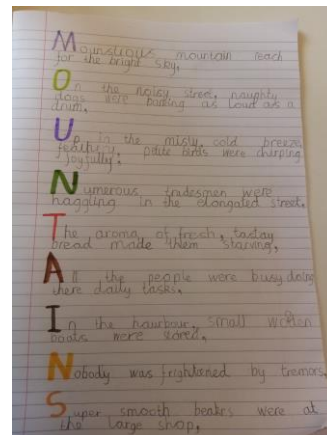 Mounstrous mountain reach
for the bright sky.
On the noisy street, naughty
dogs were barling as load as a
drum.
Up in the misty, cold breeze
feathery, petite birds were chirping
joyfully.
Numerous tradesmen were
haggling in the elongated street.
The aroma of fresh, tastay
bread made them starving.
All the people were busy doing
there daily tasks.
In the haurbour, small
boats were stored.
Nobody was frightened by tremors.
Super smooth beakrs were at
the large shop.